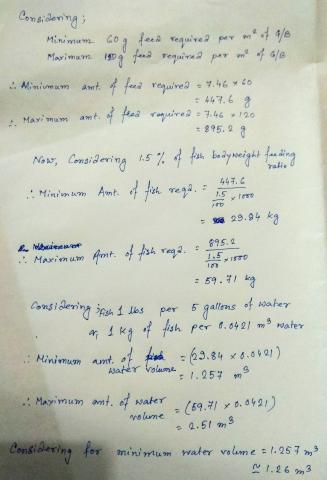 Considering;
Minimum 60 g feed required per m² of G/B
Maximum 120 g feed required per m² of G/B
∴ Minimum amt. of feed required = 7.46 × 60
= 447.6 g
∴ Maximum amt. of feed required = 7.46 × 120
= 895.2 g
Now, Considering 1.5 % of fish bodyweight feeding
ratio
∴ Minimum Amt. of fish reqd. = 447.6
1.5/100 × 1000
= 29.84 kg
∴ Maximum Amt. of fish reqd. = 895.2
1.5/100 × 1000
= 59.71 kg
Considering; fish 1 lbs per 5 gallons of water
or, 1 kg of fish per 0.0421 m³ water
∴ Minimum amt. of water volume = (29.84 × 0.0421)
= 1.257 m³
∴ Maximum amt. of water volume = (59.71 × 0.0421)
= 2.51 m³
Considering for minimum water volume = 1.257 m³
≃ 1.26 m³